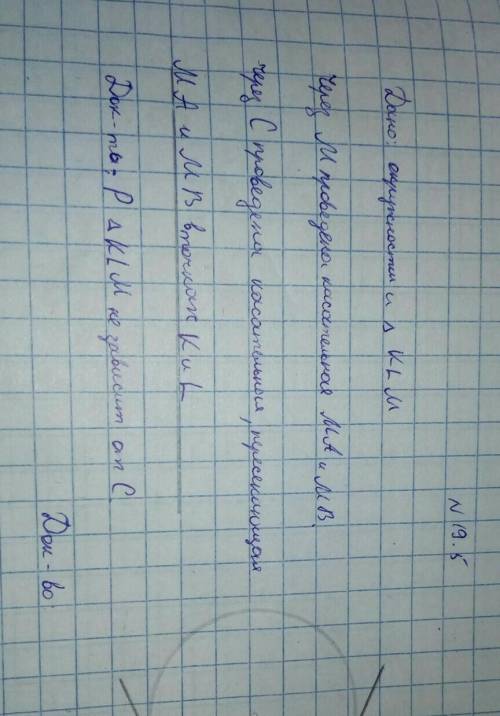 N 19.5
Дано: окружности и △ KLM
Через M проведены касательная MA и MB.
Через C проведена касательная, пересекающая
MA и MB в точках K и L
Док-ть: P △ KLM не зависит от C
Док-во: